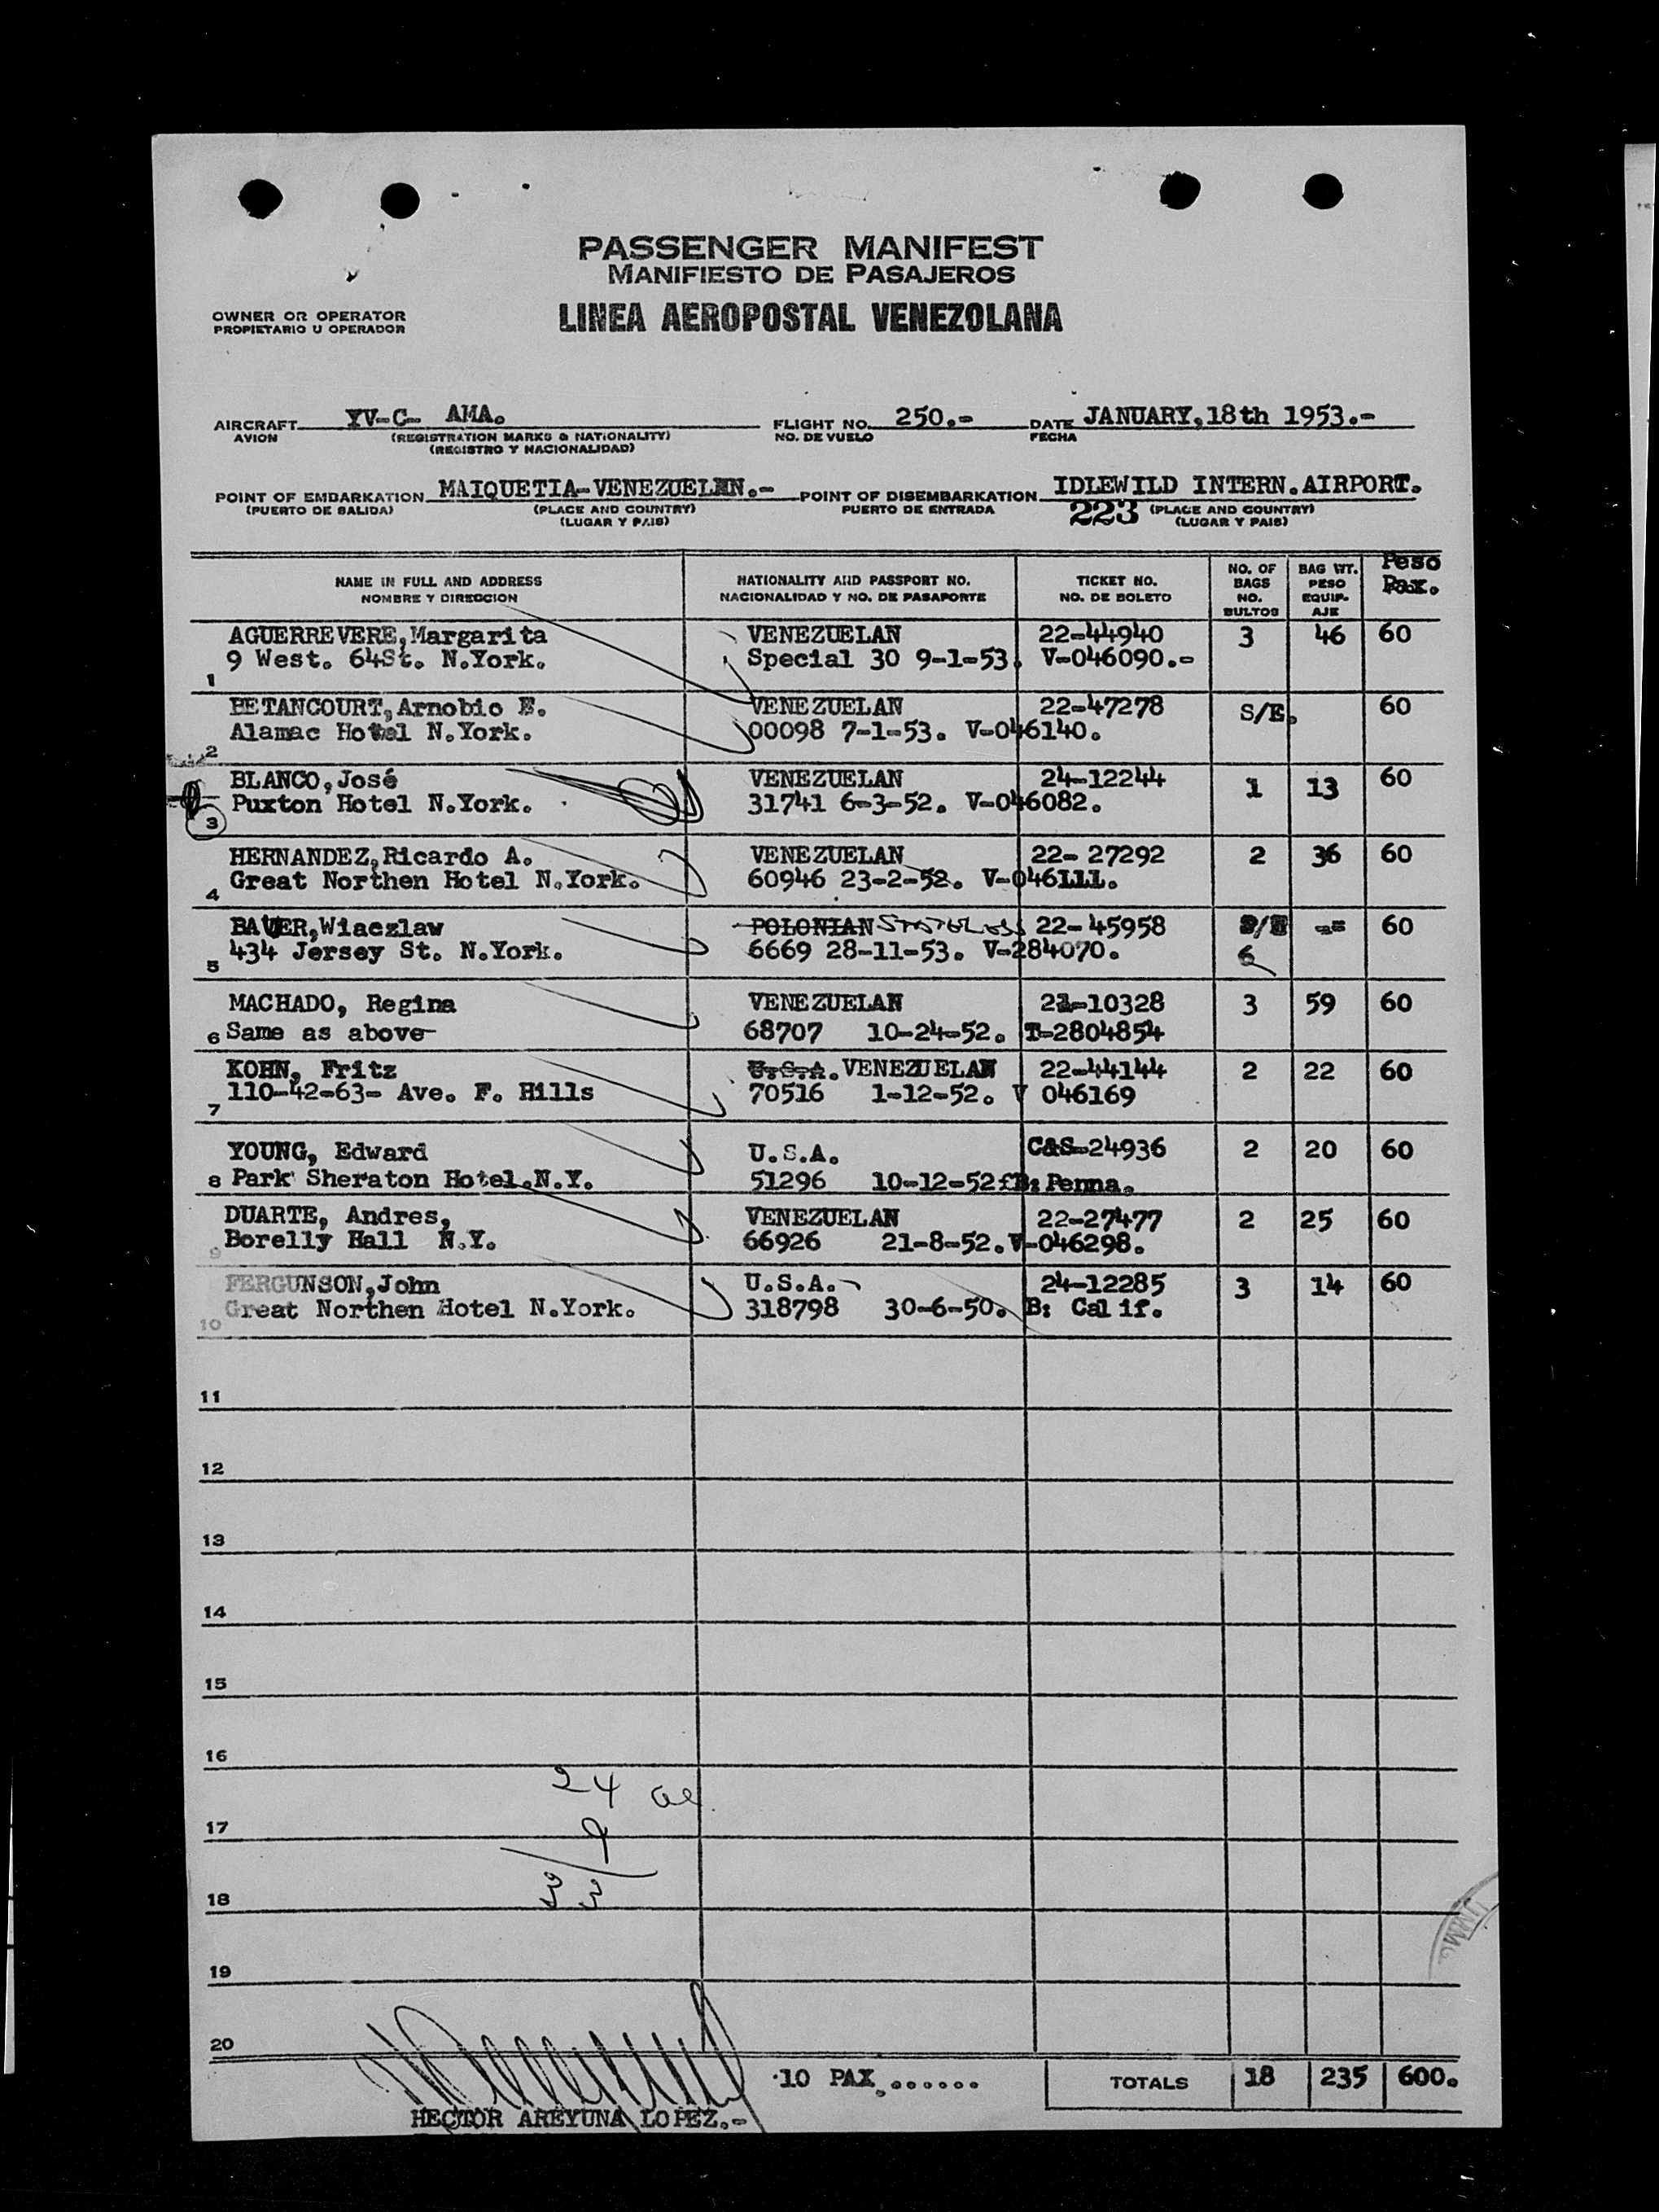 PASSENGER MANIFEST
MANIFIESTO DE PASAJEROS
OWNER OR OPERATOR
PROPIETARIO U OPERADOR
LINEA AEROPOSTAL VENEZOLANA
AIRCRAFT YV-C- AMA. FLIGHT NO. 250.- DATE JANUARY,18th 1953.-
AVION (REGISTRATION MARKS & NATIONALITY) NO. DE VUELO FECHA
(REGISTRO Y NACIONALIDAD)
POINT OF EMBARKATION MAIQUETIA-VENEZUELAN.- POINT OF DISEMBARKATION IDLEWILD INTERN.AIRPORT.
(PUERTO DE SALIDA) (PLACE AND COUNTRY) PUERTO DE ENTRADA 223 (PLACE AND COUNTRY)
(LUGAR Y PAIS) (LUGAR Y PAIS)
NAME IN FULL AND ADDRESS NATIONALITY AND PASSPORT NO. TICKET NO. NO. OF BAGS BAG WT. Peso
NOMBRE Y DIRECCION NACIONALIDAD Y NO. DE PASAPORTE NO. DE BOLETO NO. BULTOS PESO EQUIP-AJE Pax.
AGUERREVERE,Margarita VENEZUELAN 22-44940 3 46 60
1 9 West. 64St. N.York. Special 30 9-1-53. V-046090.-
BETANCOURT,Arnobio E. VENEZUELAN 22-47278 S/E. 60
2 Alamac Hotel N.York. 00098 7-1-53. V-046140.
BLANCO,José VENEZUELAN 24-12244 1 13 60
3 Puxton Hotel N.York. 31741 6-3-52. V-046082.
HERNANDEZ,Ricardo A. VENEZUELAN 22- 27292 2 36 60
4 Great Northen Hotel N.York. 60946 23-2-52. V-046111.
BAUER,Wiaczlaw POLONIAN STATELESS 22-45958 S/E -- 60
5 434 Jersey St. N.York. 6669 28-11-53. V-284070. 6
MACHADO, Regina VENEZUELAN 22-10328 3 59 60
6 Same as above- 68707 10-24-52. T-2804854
KOHN, Fritz U.S.A. VENEZUELAN 22-44144 2 22 60
7 110-42-63- Ave. F. Hills 70516 1-12-52. V 046169
YOUNG, Edward U.S.A. C&S-24936 2 20 60
8 Park Sheraton Hotel.N.Y. 51296 10-12-52 B: Penna.
DUARTE, Andres, VENEZUELAN 22-27477 2 25 60
9 Borelly Hall N.Y. 66926 21-8-52. V-046298.
FERGUNSON,John U.S.A. 24-12285 3 14 60
10 Great Northen Hotel N.York. 318798 30-6-50. B: Calif.
11
12
13
14
15
16
24
17
9
33
18
19
20
10 PAX....... TOTALS 18 235 600.
HECTOR AREYUNA LOPEZ.-